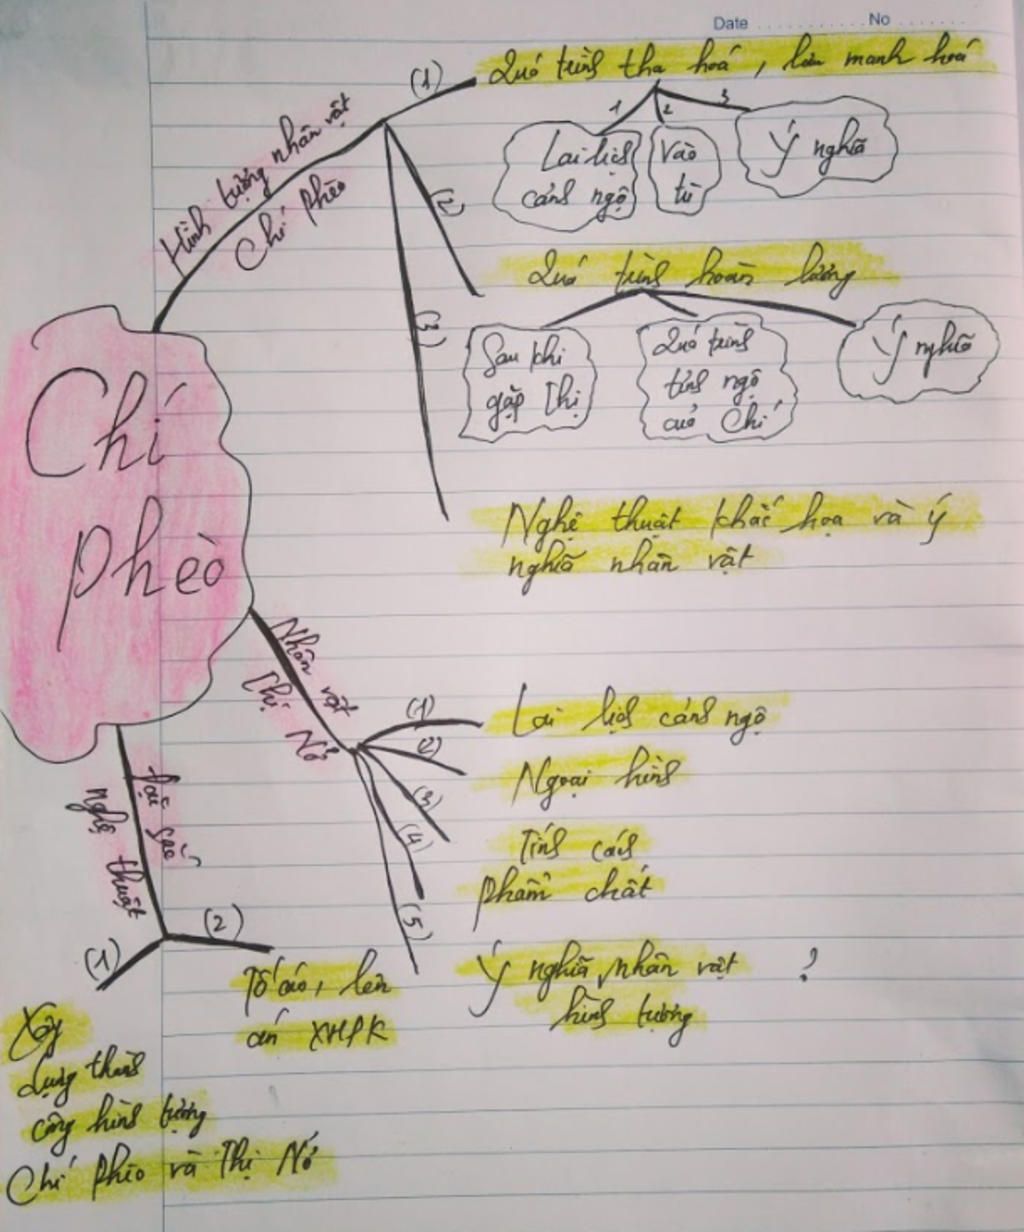 Date ............ No ........
(1) Quá trình tha hoá, lưu manh hoá
1 2 3
Lai lịch
cảnh ngộ
Vào
tù
Ý nghĩa
Hình tượng nhân vật
Chí Phèo
(2)
Quá trình hoàn lương
(3)
Sau khi
gặp Thị
Quá trình
tỉnh ngộ
của Chí
Ý nghĩa
Chí
phèo
Nghệ thuật khắc hoạ và ý
nghĩa nhân vật
Nhân vật
Thị Nở
(1) Lai lịch cảnh ngộ
(2) Ngoại hình
(3) Tính cách
(4) Phẩm chất
(5) Ý nghĩa nhân vật ?
hình tượng
Đặc sắc
nghệ thuật
(1) (2)
Tố cáo, lên
án XHPK
Xây
dựng thành
công hình tượng
Chí Phèo và Thị Nở